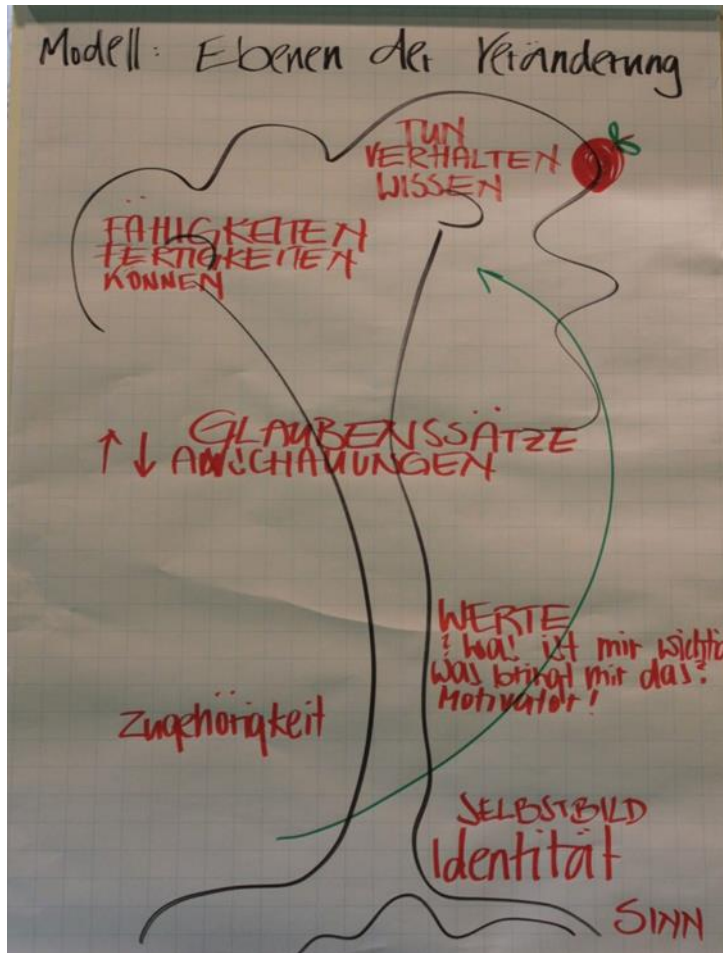 Modell: Ebenen der Veränderung
TUN
VERHALTEN
WISSEN
FÄHIGKEITEN
FERTIGKEITEN
KÖNNEN
GLAUBENSSÄTZE
↑ ↓ ANSCHAUUNGEN
WERTE
? Was ist mir wichtig
Was bringt mir das?
Motivator!
Zugehörigkeit
SELBSTBILD
Identität
SINN